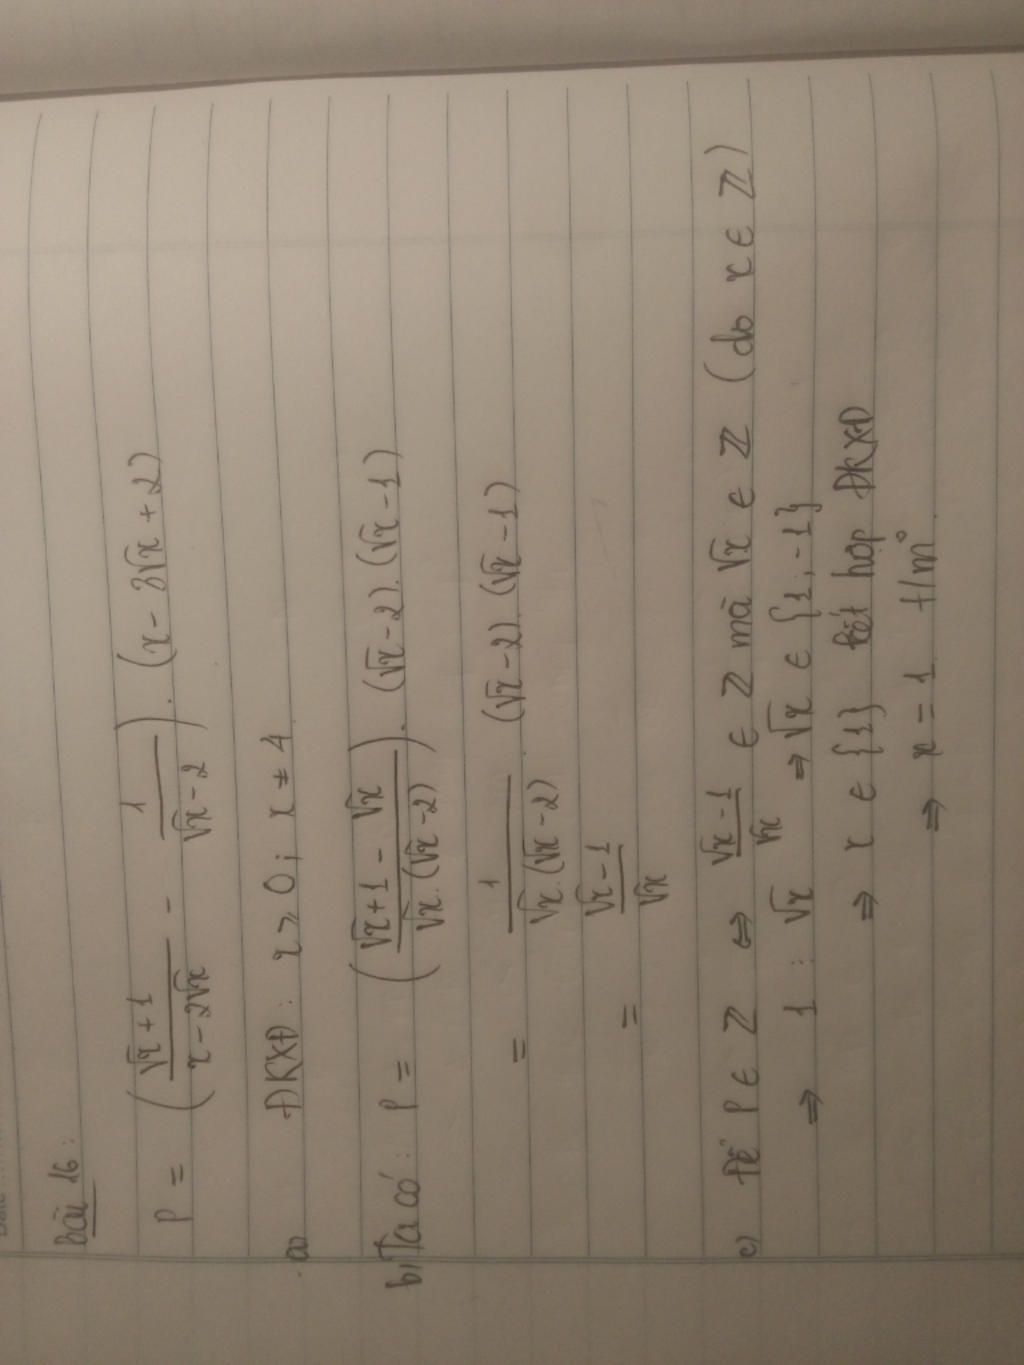 Bài 16:
P = ( (√x + 1)/(x - 2√x) - 1/(√x - 2) ) . (x - 3√x + 2)
a) ĐKXĐ: x ≥ 0; x ≠ 4
b) Ta có: P = ( (√x + 1 - √x)/(√x.(√x - 2)) ) . (√x - 2).(√x - 1)
= 1/(√x.(√x - 2)) (√x - 2).(√x - 1)
= (√x - 1)/√x
c) Để P ∈ Z ⇔ (√x - 1)/√x ∈ Z mà √x ∈ Z (do x ∈ Z)
⇒ 1 ⋮ √x ⇒ √x ∈ {1; -1}
⇒ x ∈ {1} kết hợp ĐKXĐ
⇒ x = 1 t/m